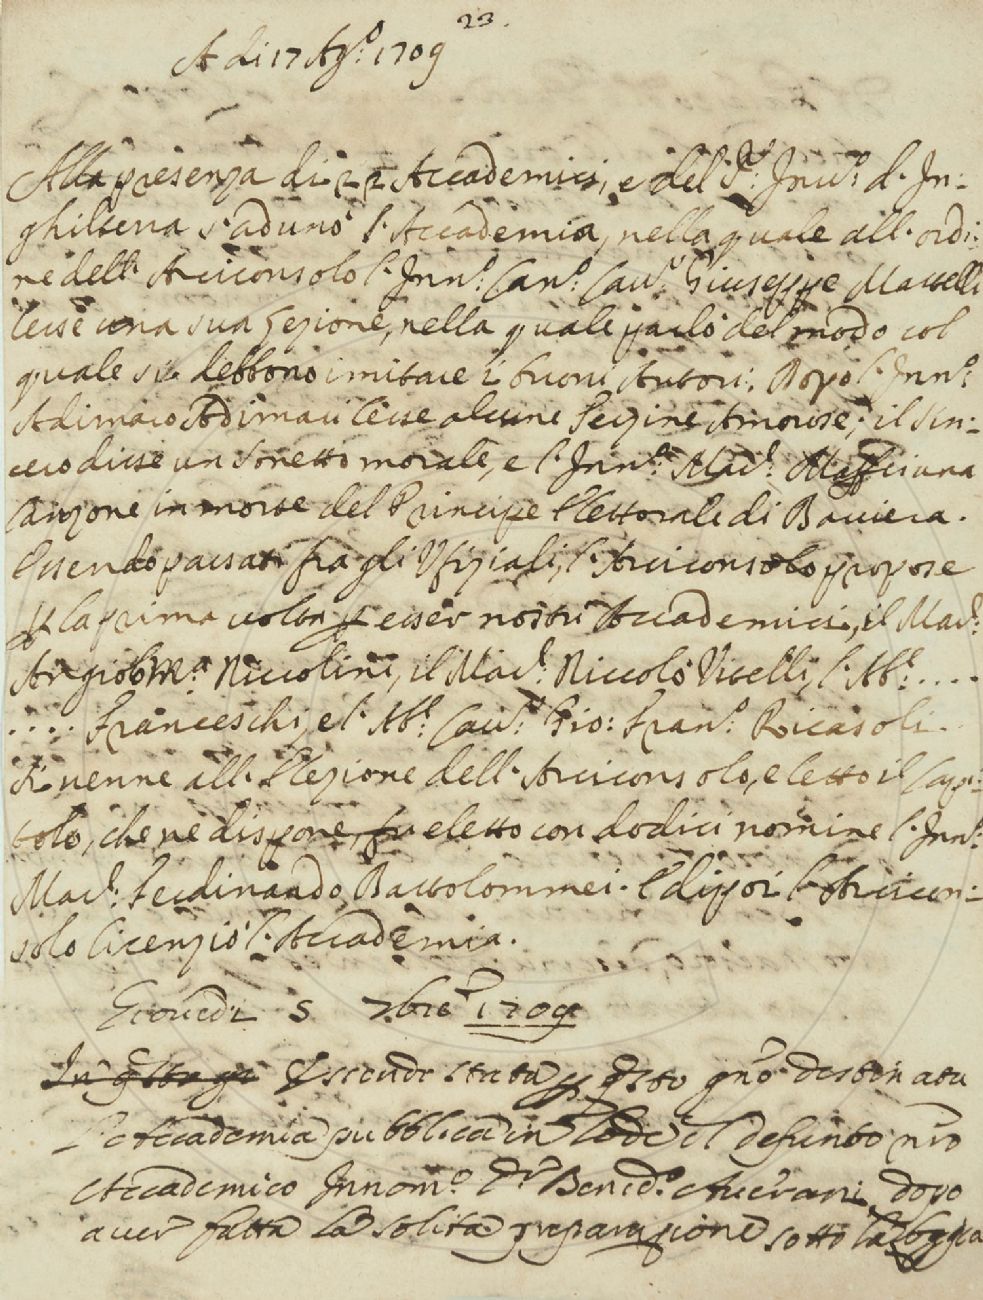 23.
A di 17 Ag.º 1709
Alla presenza di 22 Accademici, e del S.r Inv.º d'In-
ghilterra s'adunò l'Accademia, nella quale all'ordi-
ne dell'Arciconsolo l'Inn.º Can.º Cav.r Giuseppe Martelli
lesse una sua Lezione, nella quale parlò del modo col
quale si debbono imitare i buoni Autori; Dopo l'Inn.º
Adimaro Adimari lesse alcune Terzine Amorose; il Sin-
cero disse un Sonetto morale, e l'Inn.º Mar.e Maffei una
Canzone in morte del Principe Elettorale di Baviera.
Essendo passati fra gli Ufiziali, l'Arciconsolo propose
p la prima volta p esser nostri Accademici, il Mar.e
Angiol M.a Niccolini, il Mar.e Niccolò Vitelli, l'Ab.e ....
.... Franceschi, e l'Ab.e Cav.r Gio: Fran.º Ricasoli.
Si venne all'Elezione dell'Arciconsolo, e letto il Capi-
tolo, che ne dispone, fu eletto con dodici nomine l'Inn.º
Mar.e Ferdinando Bartolommei. E dipoi l'Arcicon-
solo licenziò l'Accademia.
Giovedi 5 7bre 1709
Essendo stata p qsto gno destinata
L'Accademia pubblica in lode del defunto nro
Accademico Innom.º Dr Bened.º Averani, dopo
aver fatta la solita preparazione sotto la loggia